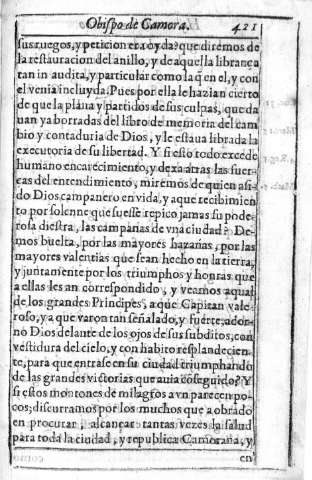 Obispo de Çamora. 421
sus ruegos, y peticion era oyda? que diremos de
la restauracion del anillo, y de aquella librança
tan in audita, y particular como la q̃ en el, y con
el venia incluyda. Pues por ella le hazian cierto
de que la plana y partidos de sus culpas, queda
uan ya borradas del libro de memoria del cam
bio y contaduria de Dios, y le estaua librada la
executoria de su libertad. Y si esto todo excede
humano encarecimiento, y dexa atras las fuer-
ças del entendimiento, miremos de quien así
do Dios campanero en vida, y a que recibimien
to por solenne que fuesse repico jamas su pode
rosa diestra, las campanas de vna ciudad? De-
mos buelta, por las mayores hazañas, por las
mayores valentias que sean hecho en la tierra,
y juntamente por los triumphos y honras que
a ellas les an correspondido, y veamos a qual
de los grandes Principes, a que Capitan vale-
roso, y a que varon tan señalado, y fuerte, ador-
no Dios delante de los ojos de sus subditos, con
vestidura del cielo, y con habito resplandecien-
te, para que entrase en su ciudad triumphando
de las grandes victorias que auia cõseguido? Y
si estos montones de milagros avn parecen po-
cos; discurramos por los muchos que a obrado
en procurar, alcançar tantas vezes la salud
para toda la ciudad, y republica Çamorana, y
en